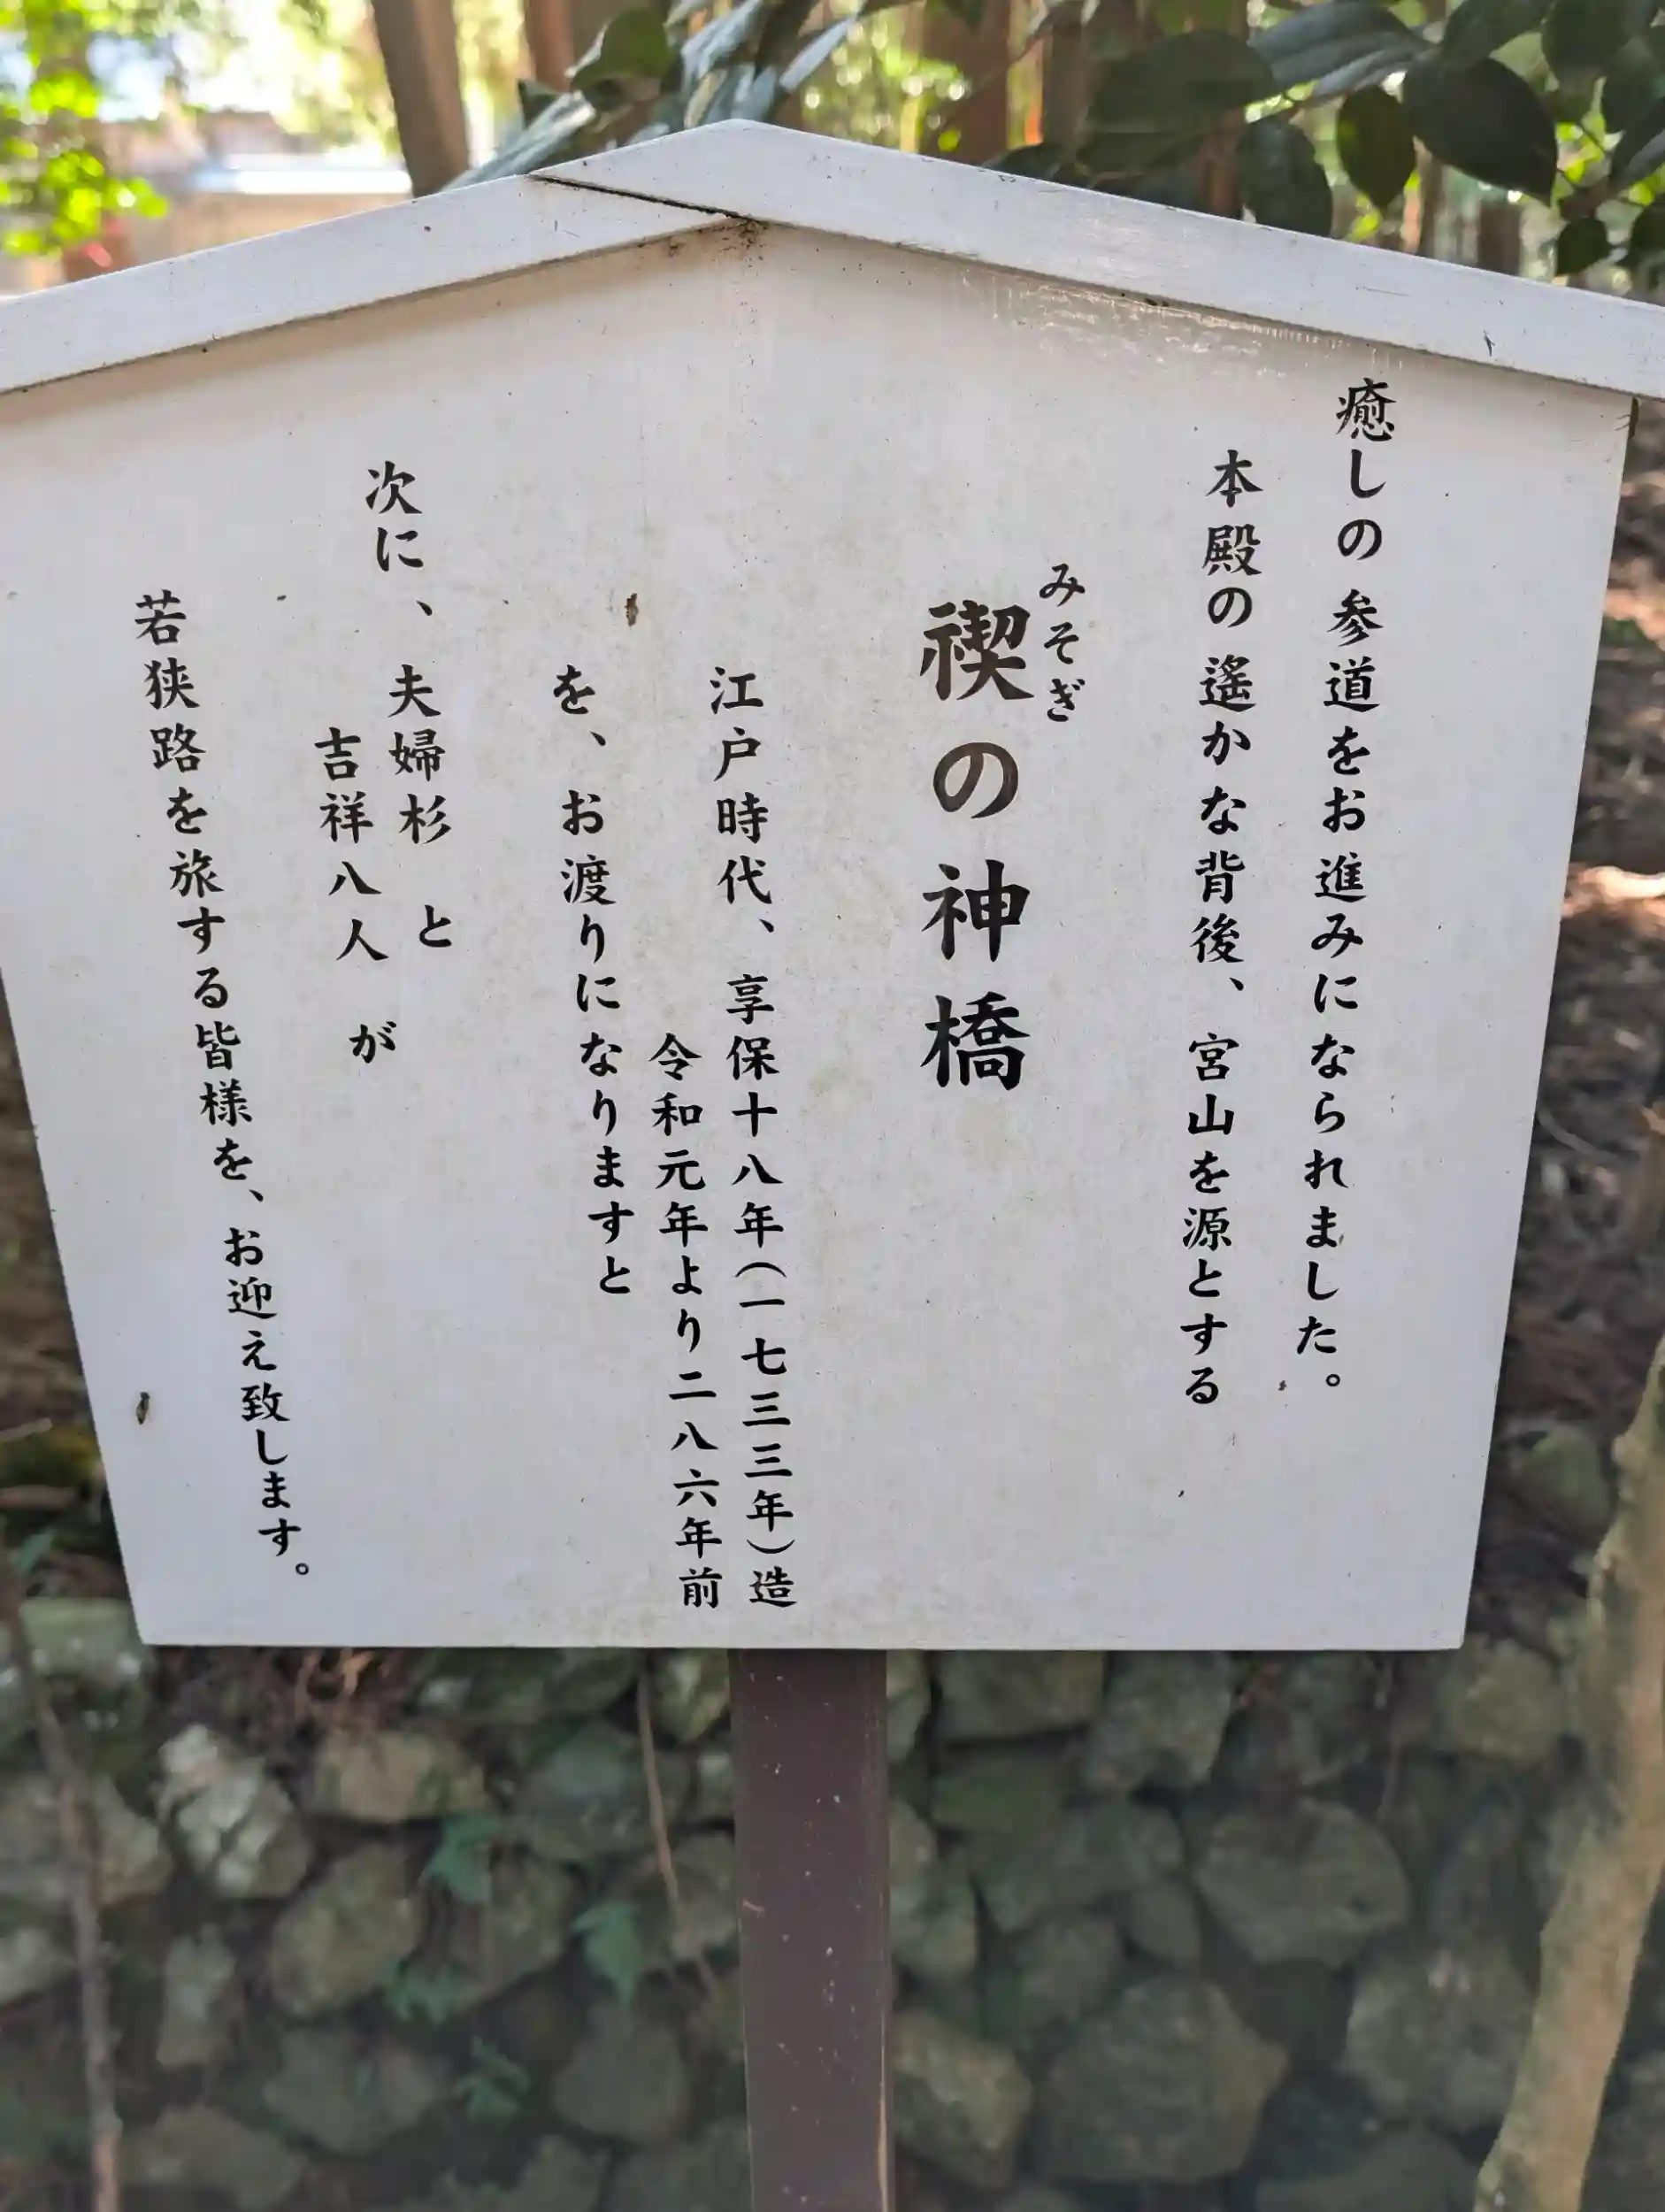 癒しの参道をお進みになられました。
本殿の遙かな背後、宮山を源とする
みそぎ
禊の神橋
江戸時代、享保十八年(一七三三年)造
令和元年より二八六年前
を、お渡りになりますと
次に、夫婦杉と
吉祥八人が
若狭路を旅する皆様を、お迎え致します。